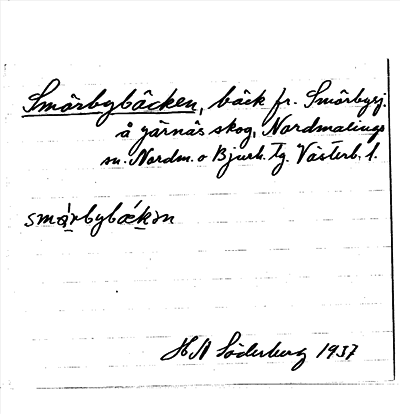 Smörbybäcken, bäck fr. Smörbysj.
å gärnäs skog, Nordmalings
sn. Nordm. o Bjurh. Tg. Västerb. l.
smǻrbybǽkən
HA Söderberg 1937